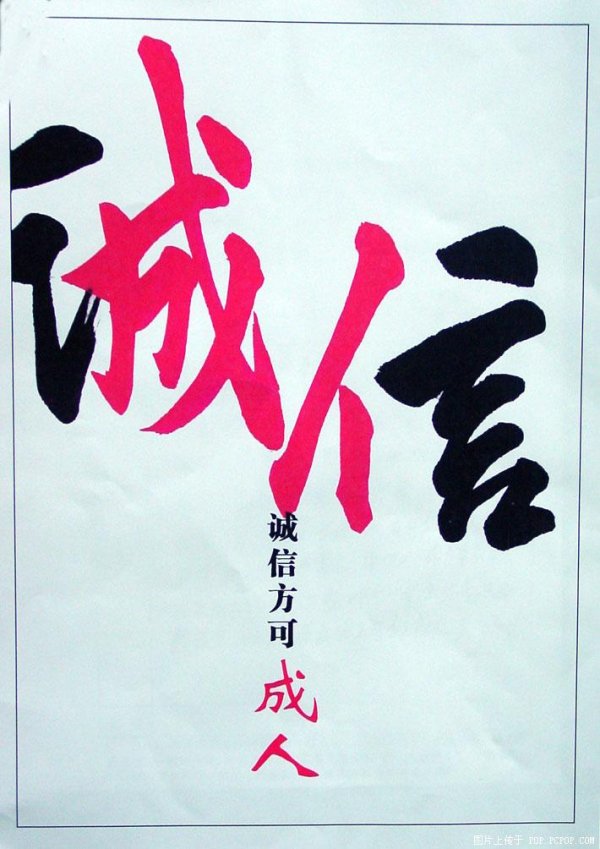 诚信
诚信方可
成人
图片上传于 POP.PCPOP.COM